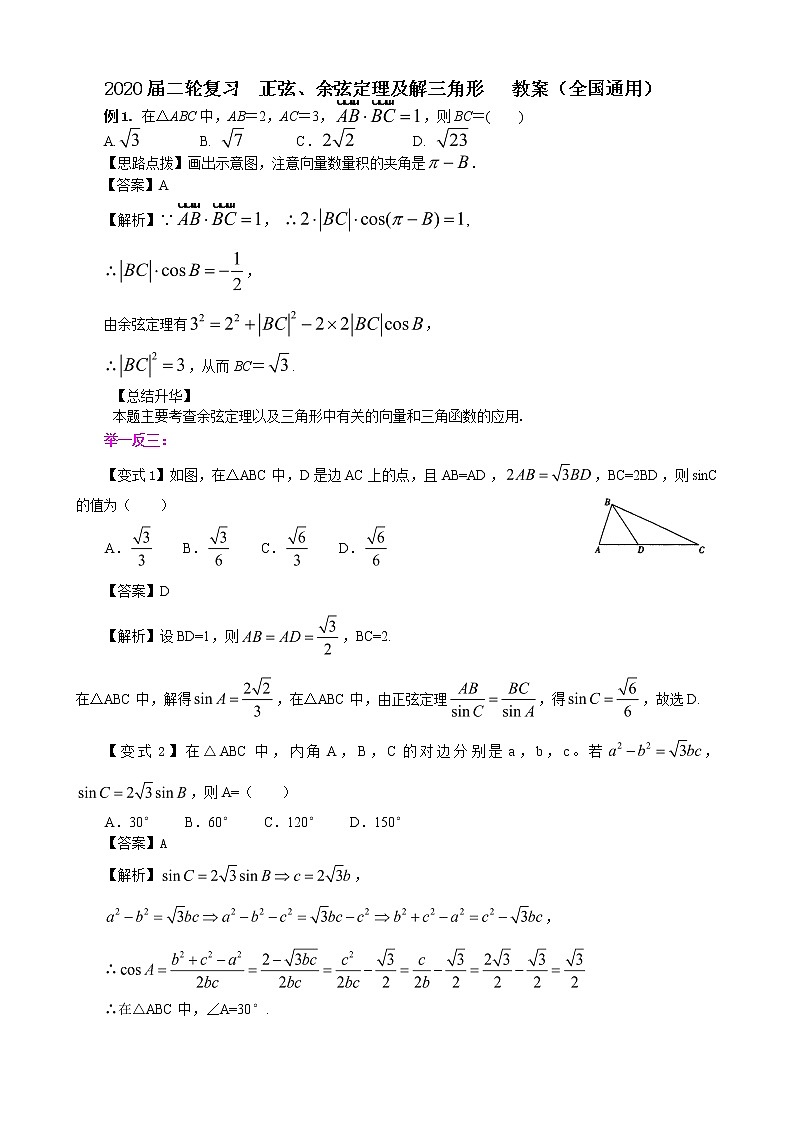 2020届二轮复习 正弦、余弦定理及解三角形 教案（全国通用）
例1. 在△ABC中，AB=2，AC=3，AB·BC=1，则BC=( )
A. √3 B. √7 C. 2√2 D. √23
【思路点拨】画出示意图，注意向量数量积的夹角是π−B.
【答案】A
【解析】∵AB·BC=1，∴2·|BC|·cos(π−B)=1,
∴|BC|·cosB=−1/2，
由余弦定理有3²=2²+|BC|²−2×2|BC|cosB，
∴|BC|²=3，从而BC=√3.
【总结升华】
本题主要考查余弦定理以及三角形中有关的向量和三角函数的应用.
举一反三：
【变式1】如图，在△ABC中，D是边AC上的点，且AB=AD，2AB=√3BD，BC=2BD，则sinC
的值为（ ）
B
A D C
A．√3/3 B．√3/6 C．√6/3 D．√6/6
【答案】D
【解析】设BD=1，则AB=AD=√3/2，BC=2.
在△ABC中，解得sinA=2√2/3，在△ABC中，由正弦定理AB/sinC=BC/sinA，得sinC=√6/6，故选D.
【变式2】在△ABC中，内角A，B，C的对边分别是a，b，c。若a²−b²=√3bc，
sinC=2√3sinB，则A=（ ）
A．30° B．60° C．120° D．150°
【答案】A
【解析】sinC=2√3sinB⇒c=2√3b，
a²−b²=√3bc⇒a²−b²−c²=√3bc−c²⇒b²+c²−a²=c²−√3bc，
∴cosA=(b²+c²−a²)/2bc=(2−√3bc)/2bc=c²/2bc−√3/2=c/2b−√3/2=2√3/2−√3/2=√3/2
∴在△ABC中，∠A=30°.